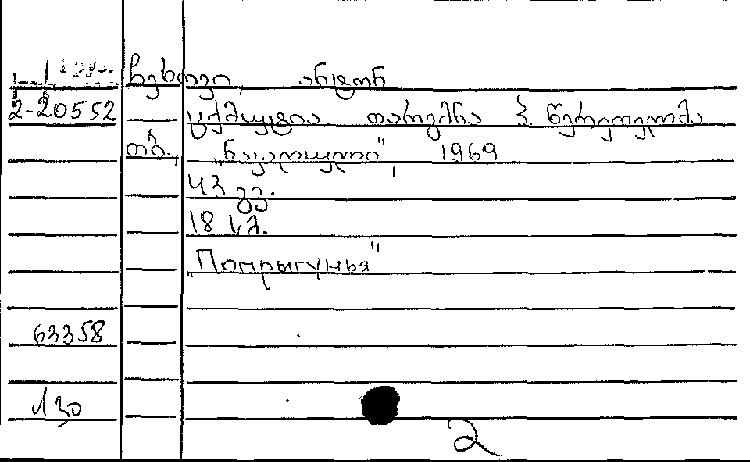 ჩეხოვი, ანტონ
2-20552 ცქმუტვია თარგმნა ზ. წერეთელმა
თბ., „ნაკადული", 1969
43 გვ.
18 სმ.
„Попрыгунья"
63358
2